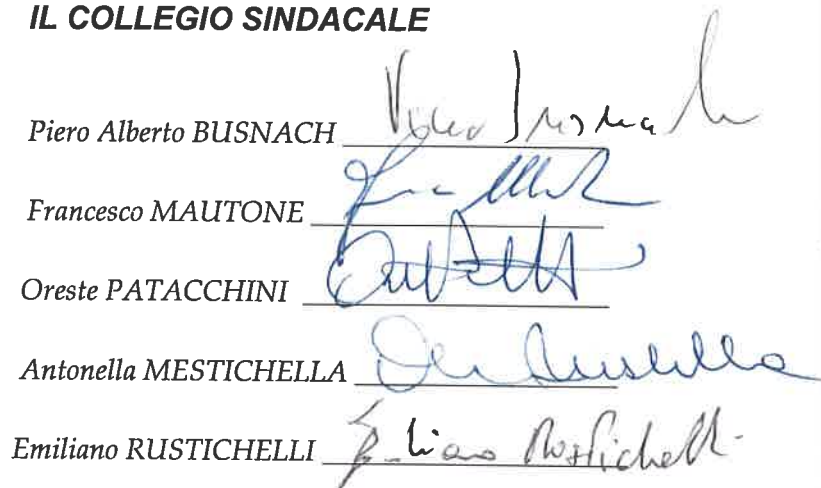 IL COLLEGIO SINDACALE
Piero Alberto BUSNACH
Francesco MAUTONE
Oreste PATACCHINI
Antonella MESTICHELLA
Emiliano RUSTICHELLI Emiliano Rustichelli